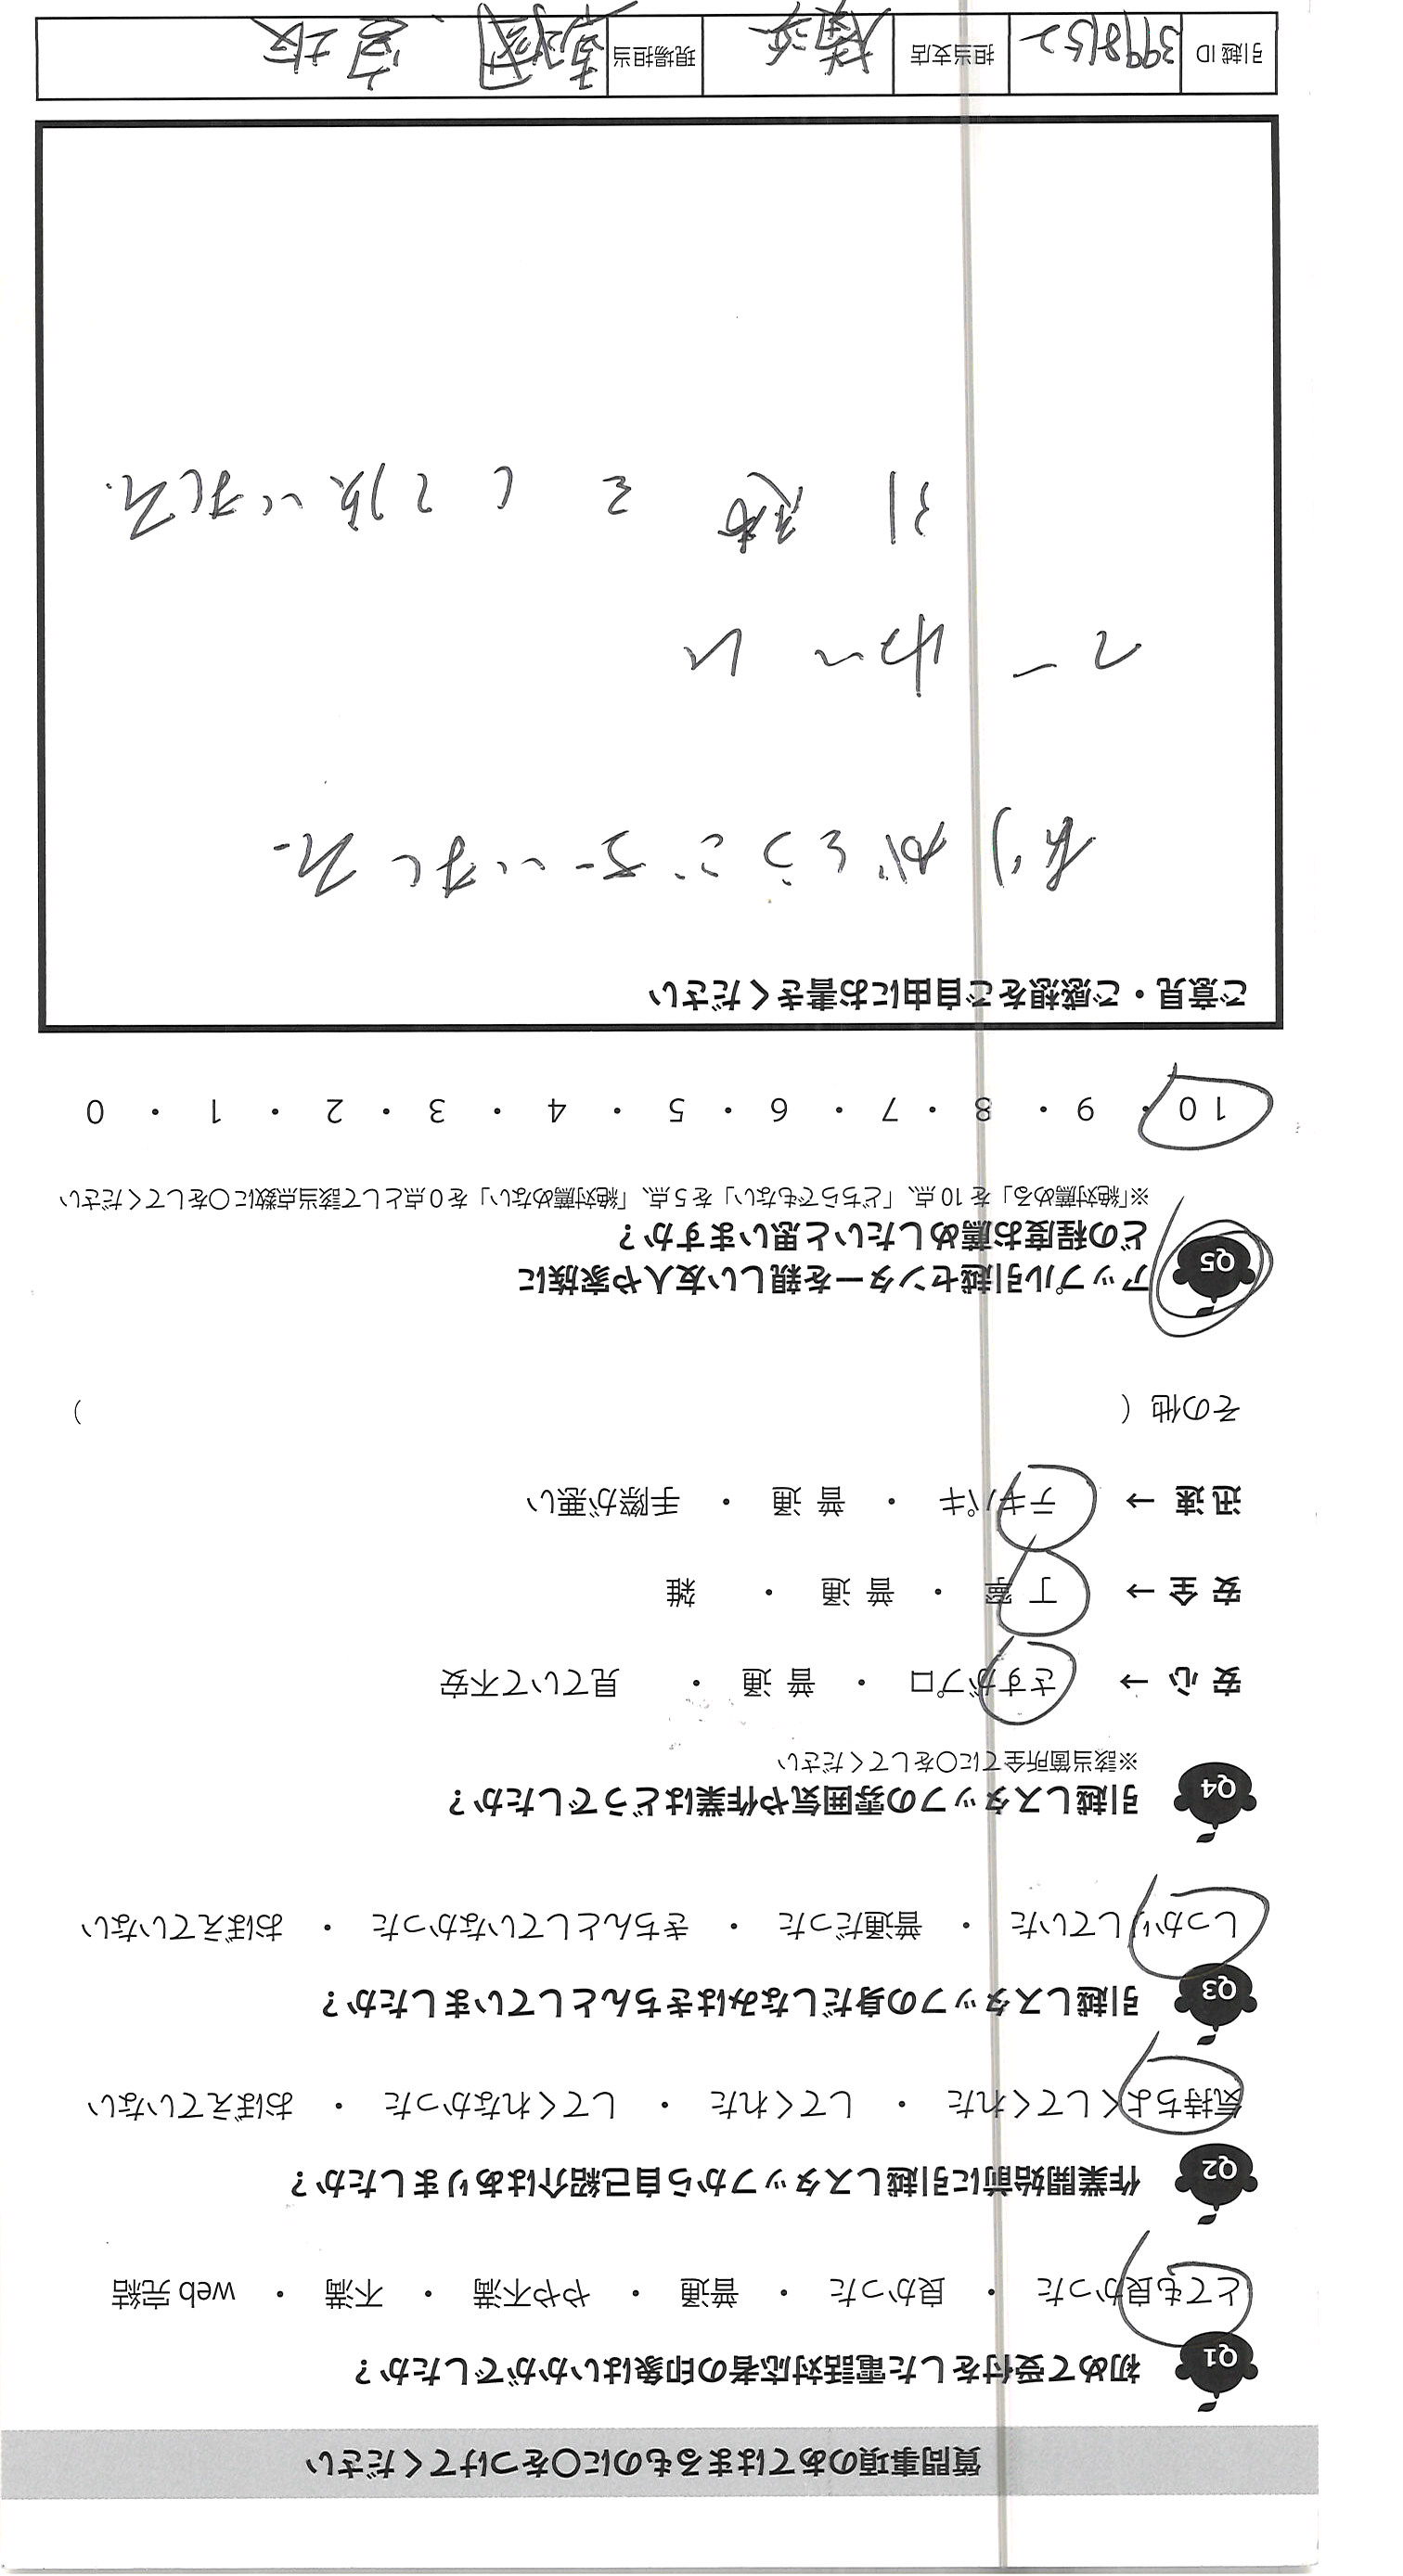 質問事項のあてはまるものに○をつけてください
Q1 初めて受付をした電話対応者の印象はいかがでしたか？
とても良かった ・ 良かった ・ 普通 ・ やや不満 ・ 不満 ・ web 完結
Q2 作業開始前に引越しスタッフから自己紹介はありましたか？
気持ちよくしてくれた ・ してくれた ・ してくれなかった ・ おぼえていない
Q3 引越しスタッフの身だしなみはきちんとしていましたか？
しっかりしていた ・ 普通だった ・ きちんとしていなかった ・ おぼえていない
Q4 引越しスタッフの雰囲気や作業はどうでしたか？
※該当箇所全てに○をしてください
安 心 → さすがプロ ・ 普 通 ・ 見ていて不安
安 全 → 丁 寧 ・ 普 通 ・ 雑
迅 速 → テキパキ ・ 普 通 ・ 手際が悪い
その他（ ）
Q5 アップル引越センターを親しい友人や家族に
どの程度お薦めしたいと思いますか？
※「絶対薦める」を 10 点、「どちらでもない」を 5 点、「絶対薦めない」を 0 点として該当点数に○をしてください
10 ・ 9 ・ 8 ・ 7 ・ 6 ・ 5 ・ 4 ・ 3 ・ 2 ・ 1 ・ 0
ご意見・ご感想をご自由にお書きください
ありがとうございました
引越をして頂いました.
引越 ID 3998152 担当支店 現場担当 宮坂